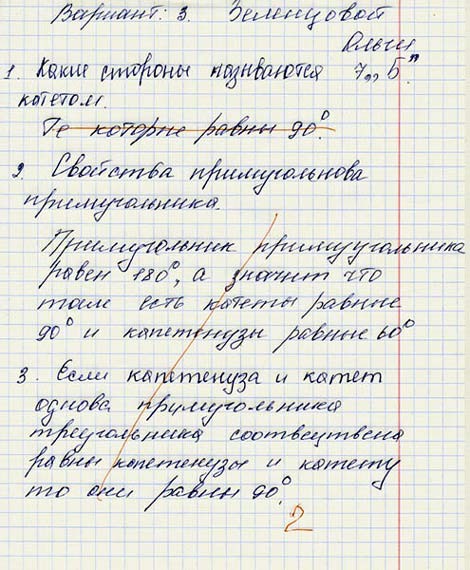 Вариант: 3. Зеленцовой
Ольги
1. Какие стороны называются 7„Б"
катетом.
Те которые равны 90°.
2. Свойства примугольнова
примугольника.
Примугольник примуугольника
равен 180°, а значит что
там есть катеты равные
90° и капетенузы равные 60°
3. Если капетенуза и катет
однова прумугольника
треугольника соотвсутвена
равны капетенузы и катету
то они равны 90°.
2